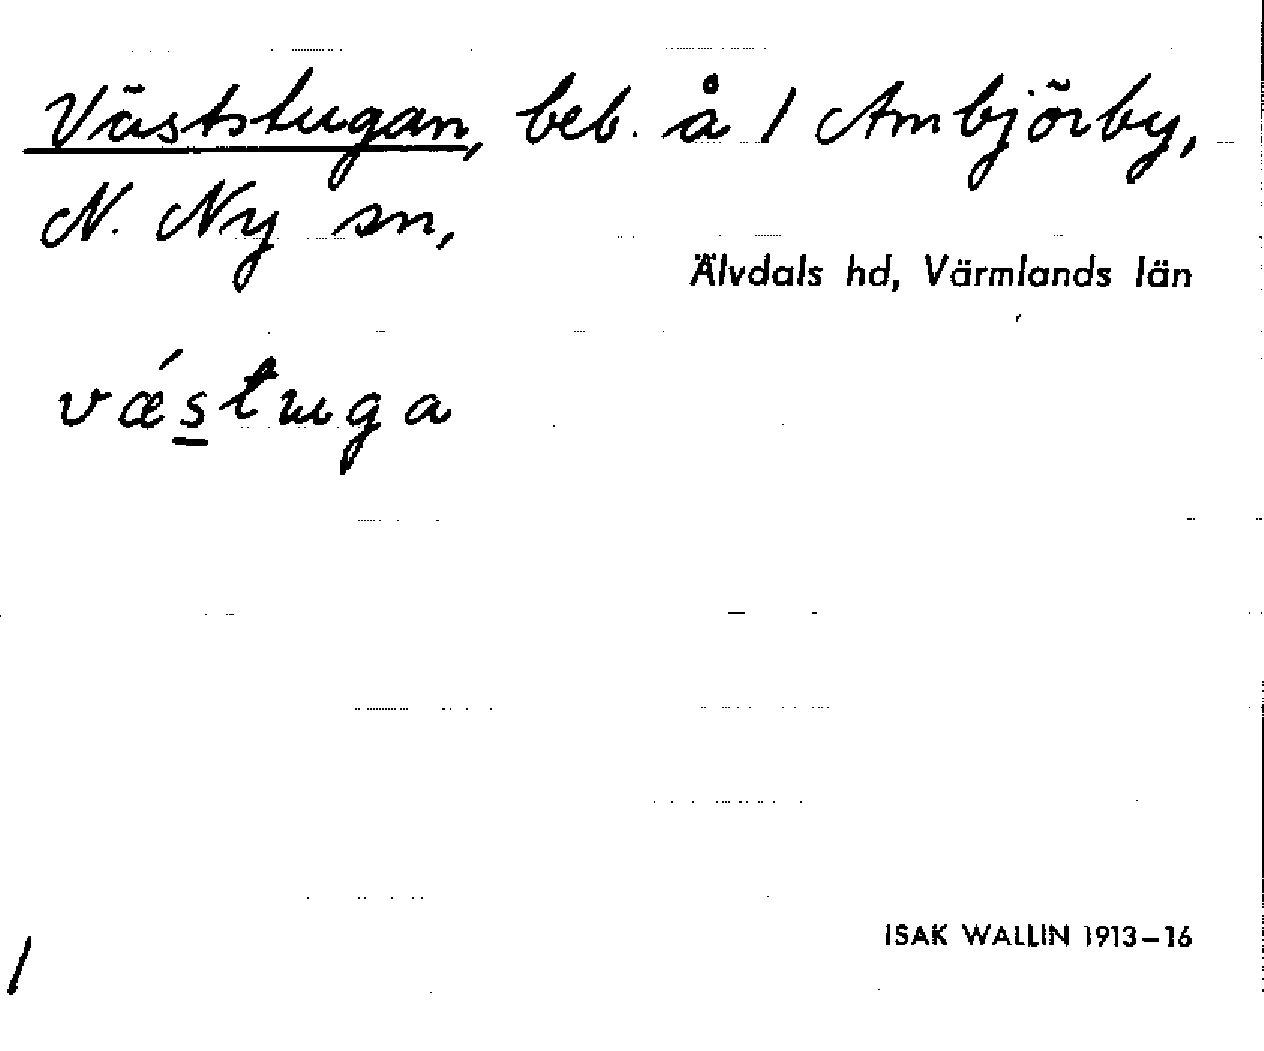 Väststugan, beb. å 1 Ambjörby,
N. Ny sn,
Älvdals hd, Värmlands län
vǽs̲tuga
ISAK WALLIN 1913–16
/